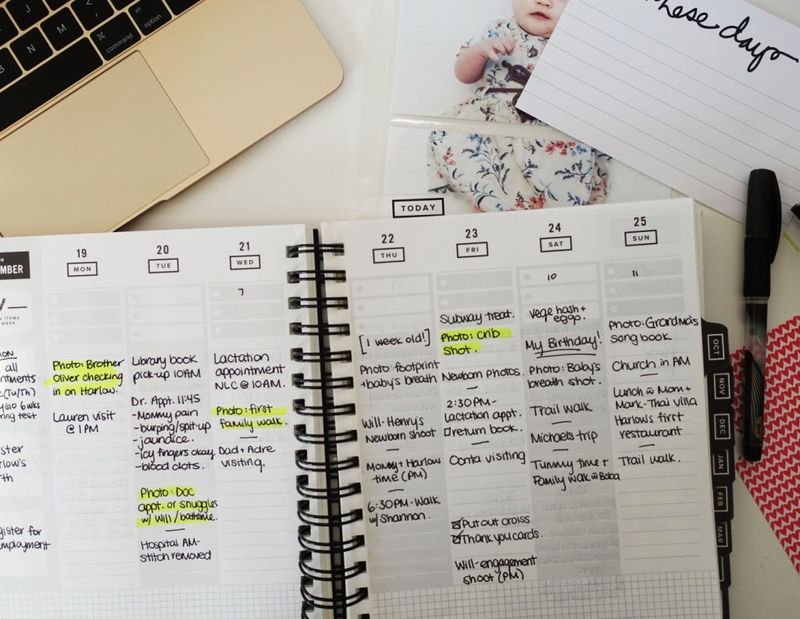 these days
command
option
TODAY
MBER
ITEMS
WEEK
all
(Tu/Th)
ysio 6 wks
ring test
ister
rlow's
th
gister for
employment
19
MON
Photo: Brother
Oliver checking
in on Harlow.
Lauren visit
@ 1PM
20
TUE
Library book
pick-up 10AM
Dr. Appt. 11:45
-Mommy pain
-burping/spit-up
-jaundice.
-icy fingers okay
-blood clots.
Photo: Doc
appt. or snuggles
w/ Will/bathtime.
Hospital AM-
stitch removed
21
WED
7
Lactation
appointment
NLC @ 10AM.
Photo: first
family walk.
Dad + Adre
visiting.
22
THU
[1 week old!]
Photo footprint
+ baby's breath
Will-Henry's
Newborn shoot
Mommy + Harlow
time (PM)
6:30PM-Walk
w/ Shannon.
23
FRI
Subway treat.
Photo: Crib
shot.
Newborn photos.
2:30PM-
Lactation appt.
return book.
Oonta visiting
Put out
Thank you cards.
Will-engagement
shoot (PM)
24
SAT
10
Vege hash +
eggs.
My Birthday!
Photo: Baby's
breath shot.
Trail walk
Michaels trip
Tummy time +
Family walk w Baba
25
SUN
11
Photo: Grandma's
song book.
Church in AM
Lunch w Mom +
Mark-Thai villa
Harlow's first
restaurant
Trail walk.
OCT
NOV
DEC
JAN
FEB
MAR